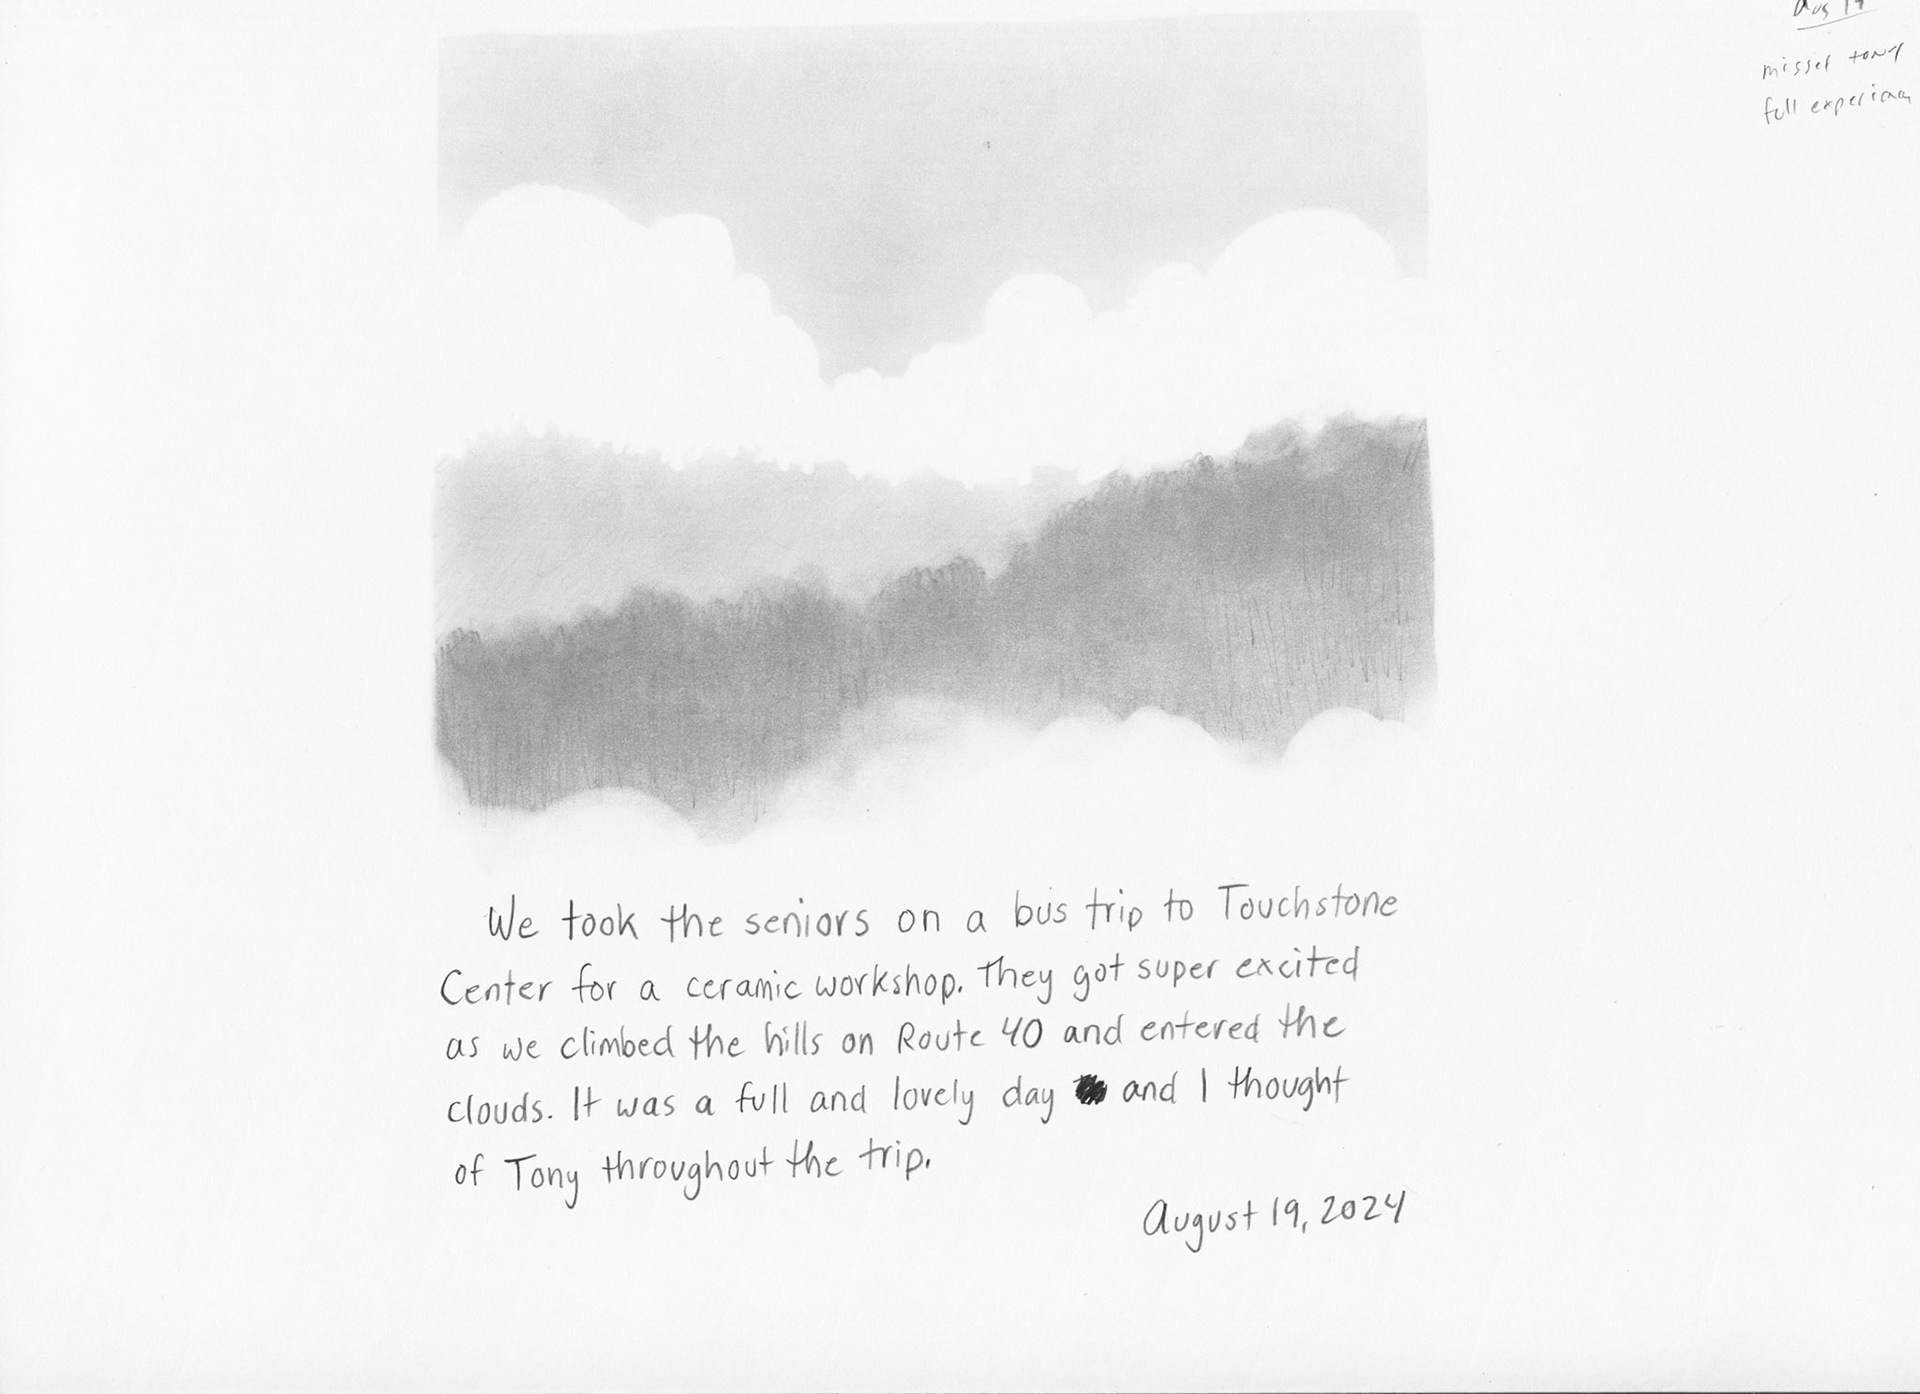 Aug 19
missed tony
full experience
We took the seniors on a bus trip to Touchstone
Center for a ceramic workshop. They got super excited
as we climbed the hills on Route 40 and entered the
clouds. It was a full and lovely day and I thought
of Tony throughout the trip.
August 19, 2024